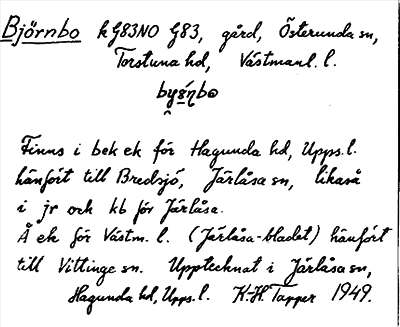 Björnbo k G83NO G83, gård, Österunda sn,
Torstuna hd, Västmanl. l.
Finns i bek ek för Hagunda hd, Upps. l.
hänfört till Bredsjö, Järlåsa sn, likaså
i jr och kb för Järlåsa.
Å ek för Västm. l. (Järlåsa-bladet) hänfört
till Vittinge sn. Upptecknat i Järlåsa sn,
Hagunda hd, Upps. l. K-H. Tapper 1949.